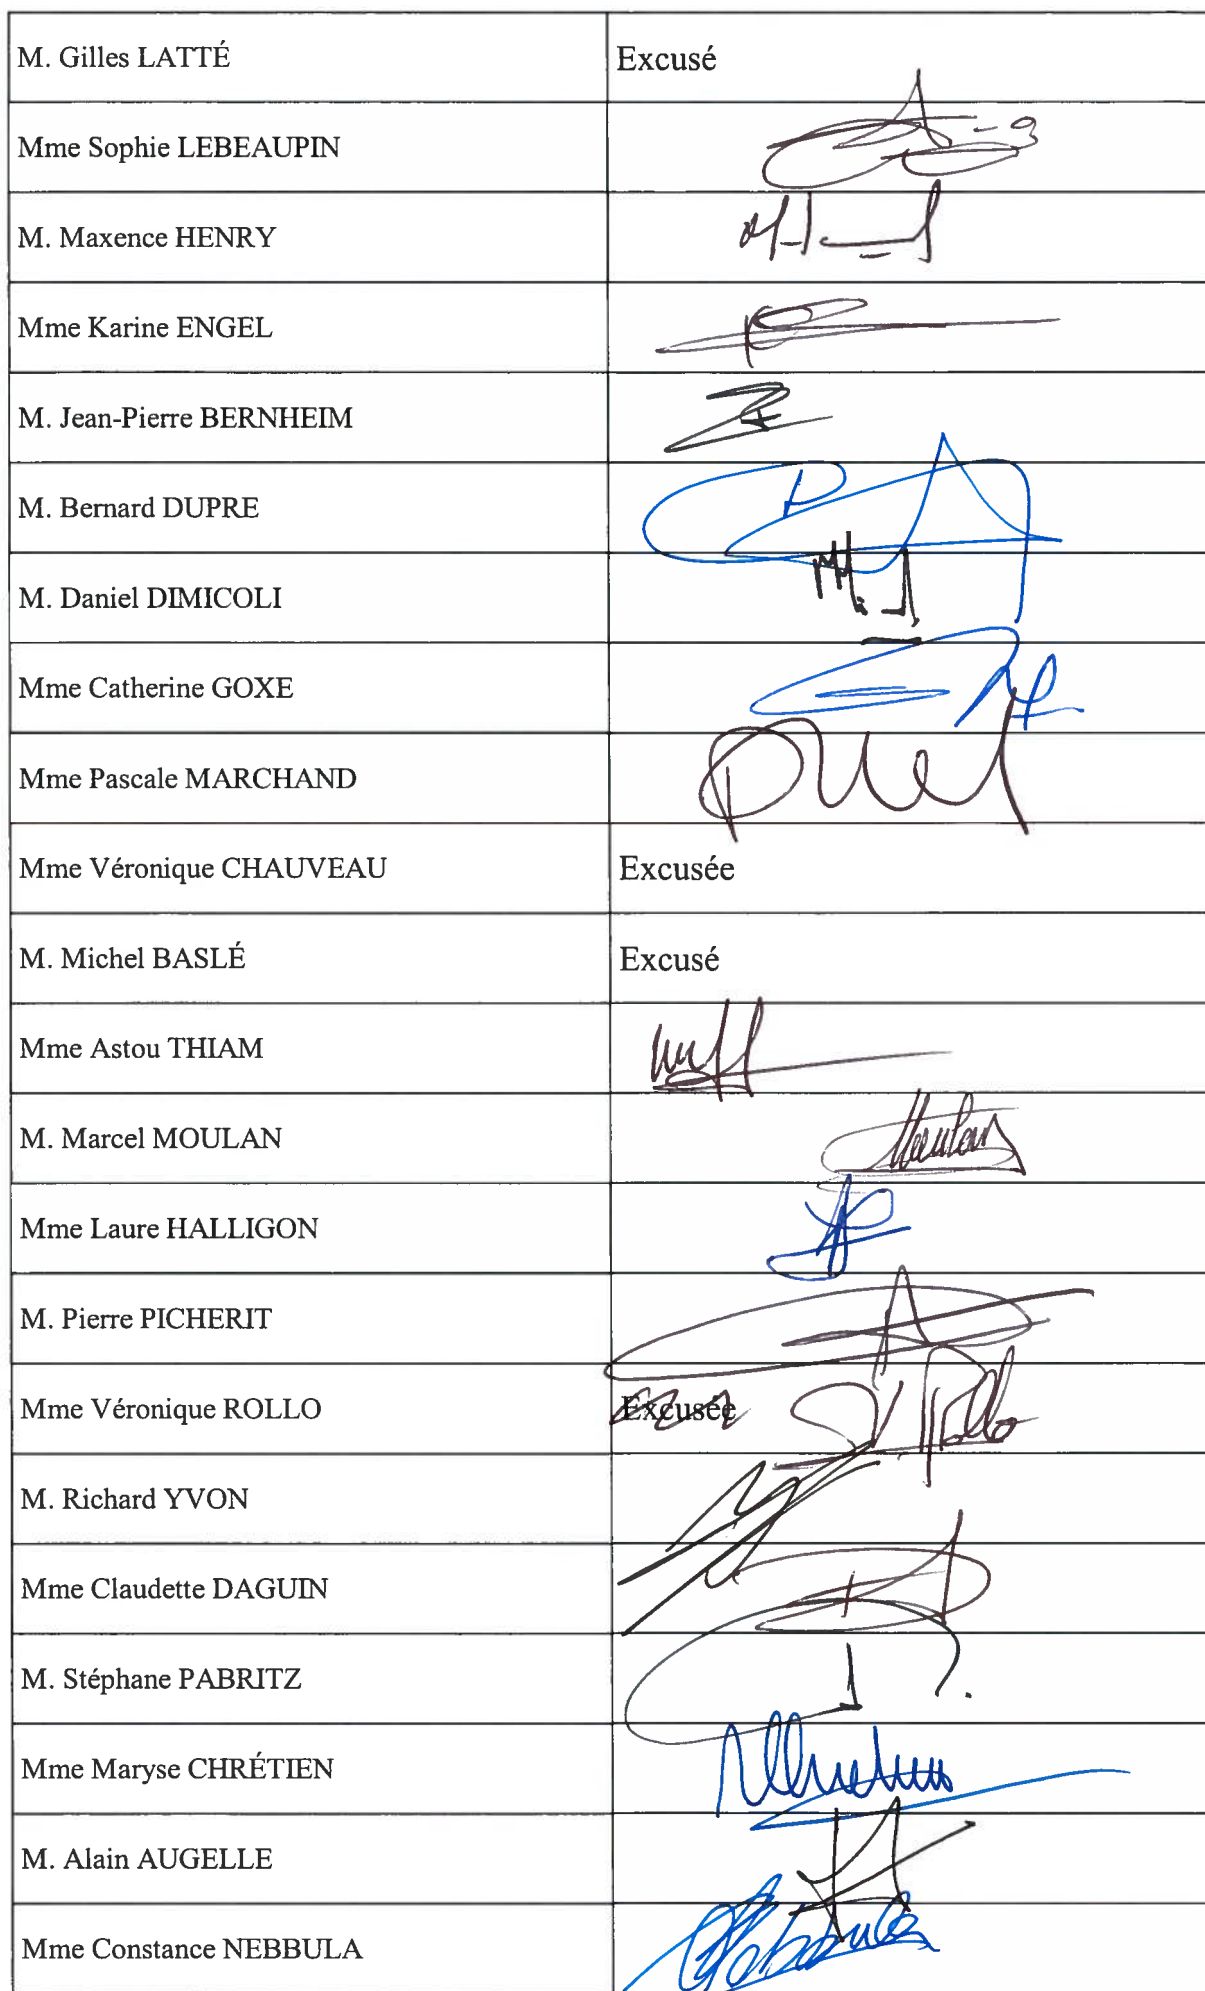 M. Gilles LATTÉ Excusé
Mme Sophie LEBEAUPIN
M. Maxence HENRY
Mme Karine ENGEL
M. Jean-Pierre BERNHEIM
M. Bernard DUPRE
M. Daniel DIMICOLI
Mme Catherine GOXE
Mme Pascale MARCHAND
Mme Véronique CHAUVEAU Excusée
M. Michel BASLÉ Excusé
Mme Astou THIAM
M. Marcel MOULAN
Mme Laure HALLIGON
M. Pierre PICHERIT
Mme Véronique ROLLO Excusée
M. Richard YVON
Mme Claudette DAGUIN
M. Stéphane PABRITZ
Mme Maryse CHRÉTIEN
M. Alain AUGELLE
Mme Constance NEBBULA